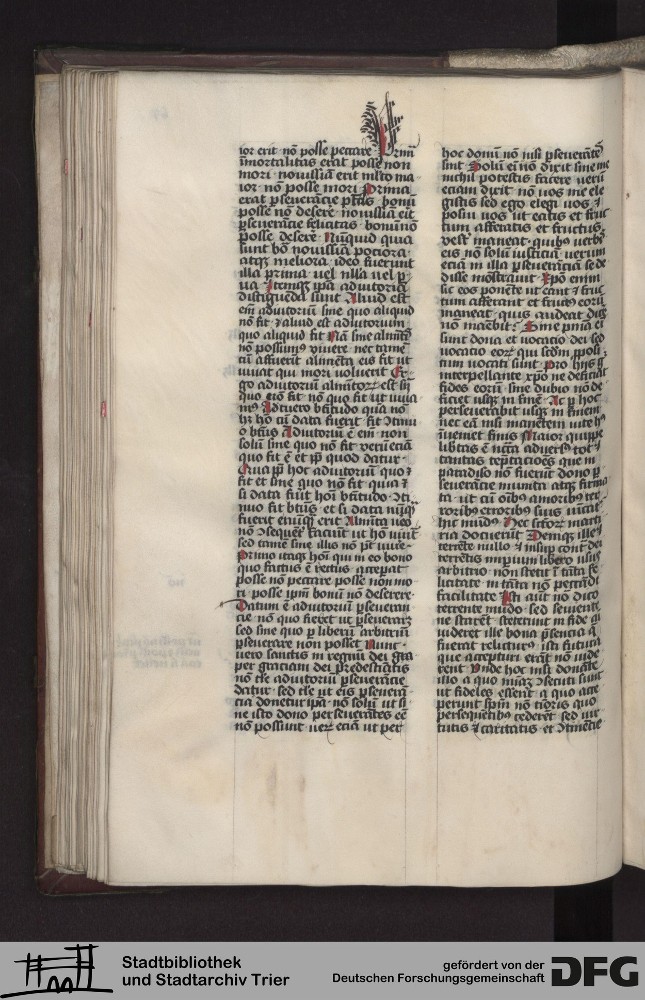 ior erit nō posse peccare · Prima
īmortalitas erat posse non
mori · nouissīa erit mlto ma
ior · nō posse mori · Prima
erat pseuerācie ptās bonū
posse nō deserē · nouissīa eīt
pseuerācie felicitas · bonū nō
posse deserē · Nūquid quia
sunt bōa nouissīa potiora
atqʒ meliora · ideo fuerunt
illa prima uel nulla uel p̄
ua · Itemqʒ ipā adiutoria
distīguēda sunt · Aliud est
eīm adiutoriū sine quo aliquid
nō fit · ⁊ aliud est adiutorium
quo aliquid fit · Nā sine alimētis
nō possumꝰ viuere · nec tamē
cū affuerīt alimēta eis fit ut
uiuat qui mori voluerit · Er
go adiutoriū alimētoꝝ est sīn
quo eīm fit · nō quo fit ut viua
mꝰ · Adtuero bītudo quā nō
hʒ hō cū data fuerit · fit ꝯtinu
o bītus · Adiutoriū ē eīm non
solū sine quo nō fit verū eciā
quo fit ē et ꝓp̄ quod datur ·
Quia ꝓp̄ hoc adiutoriū quo ⁊
fit et sine quo nō fit · quia ⁊
si data fūit hoī bītudo · ꝯti
nuo fit bītus · et si data nūqʒ
fuerit nūqʒ erit · Alimēta vero
nō ꝯsequēt̄ faciūt ut hō viuat
sed tamē sine illis nō pt̄ viuē ·
Primo itaqʒ hoī qui in eo bono
quo factus ē rectus acceperat
posse nō peccare posse nō mo
ri · posse ipm̄ bonū nō deserere ·
Datum ē adiutoriū pseueran
cie nō quo fieret ut pseueraret
sed sine quo p liberū arbitriū
pseuerare non posset · Nunc
uero sanctis in regnū dei · gra
per graciam dei predestīatis
nō tale adiutoriū pseuerācie
datur · sed tale ut eis pseuerā
cia donetur ipā · nō solū ut si
ne isto dono perseuerātes eē
nō possint · verū eciā ut per
hoc donū nō nisi pseuerātes
sint · Solū eīm nō dixit sine me
nichil potestis facere · verū
eciam dixit · nō uos me ele
gistis sed ego elegi uos · ⁊
posui uos ut eatis et fruc
tum afferatis · et fructus
vest̄ maneat · quibꝰ verbis
eis nō solū iusticiā · verum
eciā in illa pseuerāciā se de
disse mōstrauit · Xpō enim
sic eos ponēte ut eant ⁊ fruc
tum afferant et fructꝰ eorū
maneat · quis audeat dicē
nō manēbit · Sine pnīa eīm
sunt dona et vocatio dei · sed
vocatio eoꝝ qui scdm̄ ꝓposi
tum vocati sunt · Pro hijs gͦ
interpellante xpō ne deficiat
fides eorū · sine dubio nō de
ficiet usqʒ in finē · Ac p hoc
perseuerabit usqʒ in finem
nec eā nisi manētem vite hꝰ
īueniet finis · Maior quippe
libtas ē nēcīa aduersꝰ tot ⁊
tantas teptacioēs que in
paradiso nō fuerūt dono p
seuerācie munita atqʒ firma
ta · ut cū oībꝰ amoribꝰ ter
roribꝰ erroribꝰ suis uincat̄
hic mūdꝰ · Hec sctorū marti
ria docuerūt · Denique ille ⁊
terrēte nullo ⁊ insup cont̄ dei
terrētis impiūm libero usus
arbitrio · non stetit ī tāta fe
licitate in tāta nō peccādi
facilitate · Isti aūt nō dico
terrente mūdo · sed seuiente
ne starēt · steterunt in fide · cū
videret ille bona p̄sencia q̄
fuerat relicturꝰ · isti futura
que accepturi erāt nō vide
rent · Unde hoc nisi donāte
illo · a quo miāʒ ꝯsecuti sunt
ut fideles essent · a quo acce
perunt spm̄ nō tioris quo
persequētibꝰ cederēt · sed vir
tutis ⁊ caritatis · et ꝯtinētie
Stadtbibliothek
und Stadtarchiv Trier
gefördert von der
Deutschen Forschungsgemeinschaft
DFG